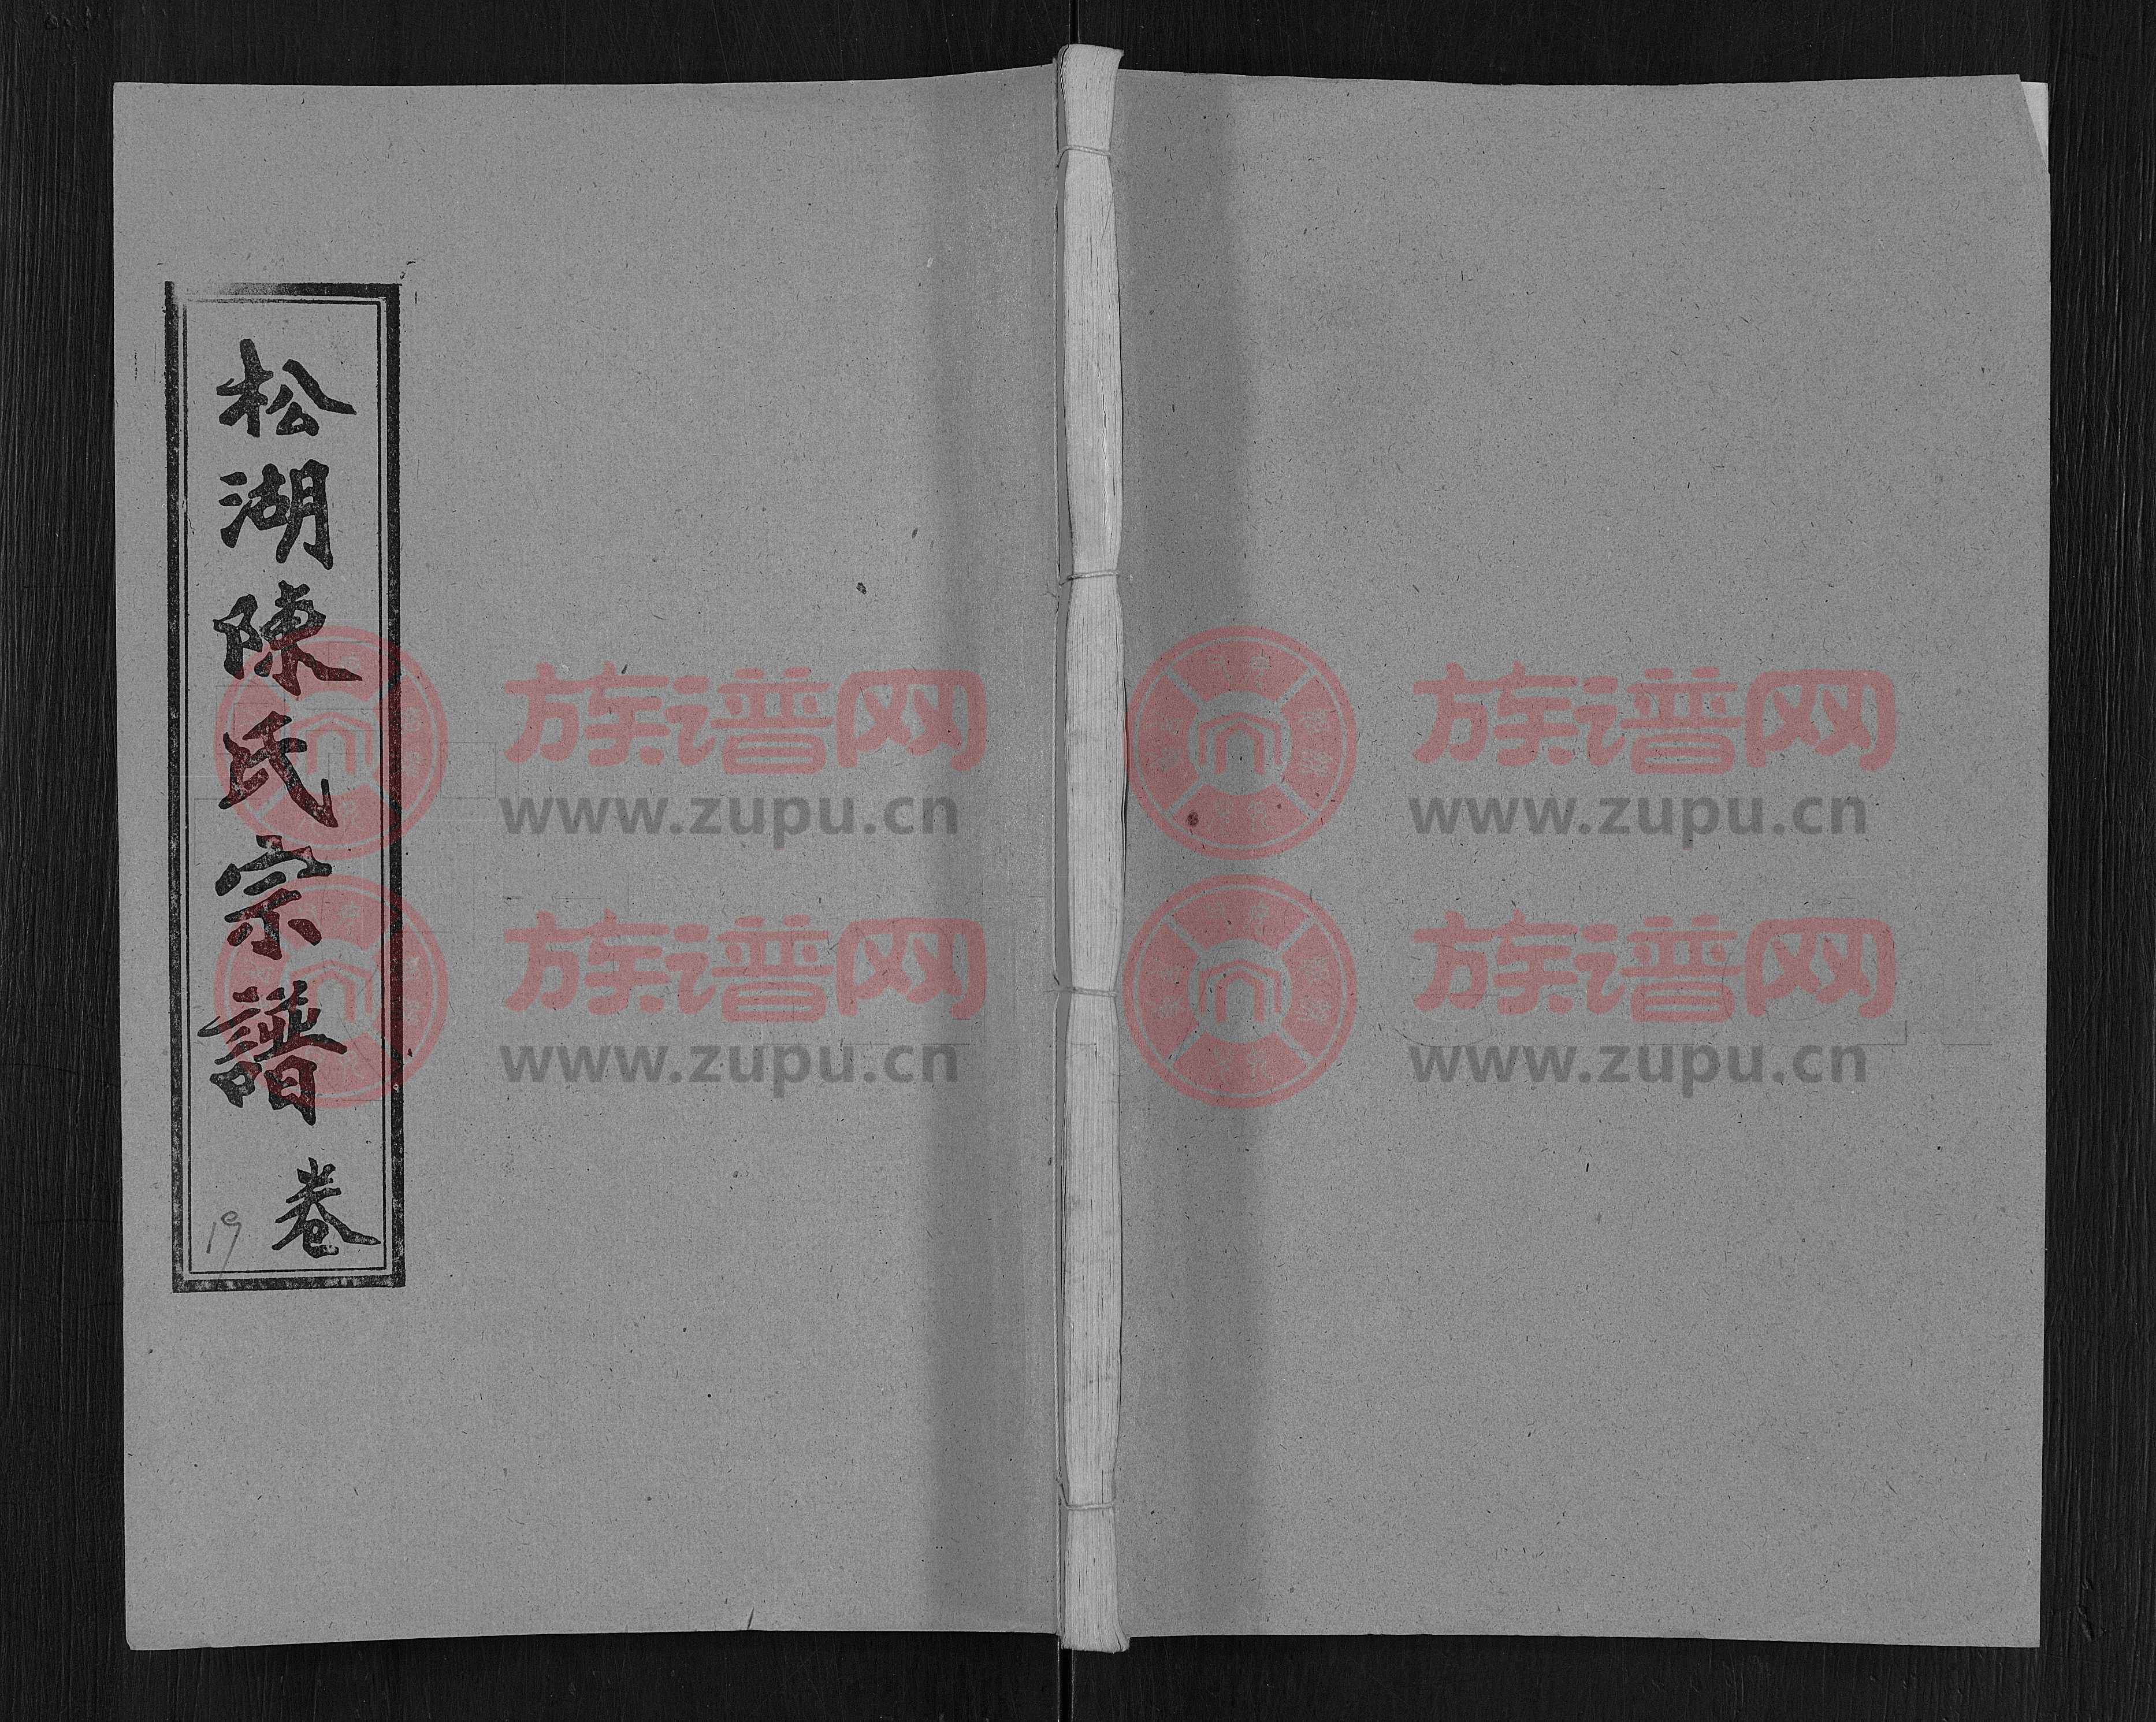 松湖陳氏宗譜
卷
19
族谱网
www.zupu.cn
族谱网
www.zupu.cn
族谱网
www.zupu.cn
族谱网
www.zupu.cn